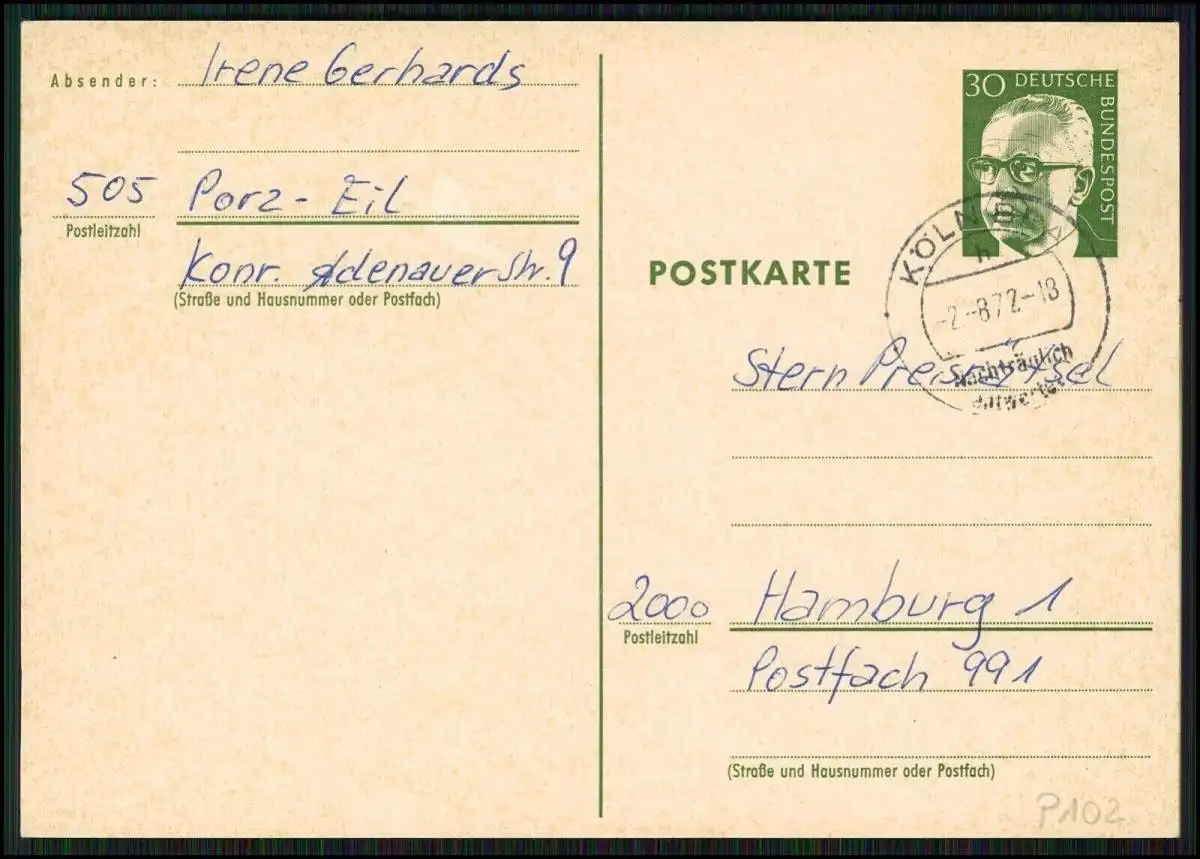 Absender: Irene Gerhards
505 Porz-Eil
Postleitzahl
Konr. Adenauer Str. 9
(Straße und Hausnummer oder Postfach)
30 DEUTSCHE BUNDESPOST
POSTKARTE
KÖLN
h
-2.-8.72-18
Nachträglich
entwertet
Stern Preisrätsel
2000 Hamburg 1
Postleitzahl
Postfach 991
(Straße und Hausnummer oder Postfach)
P102